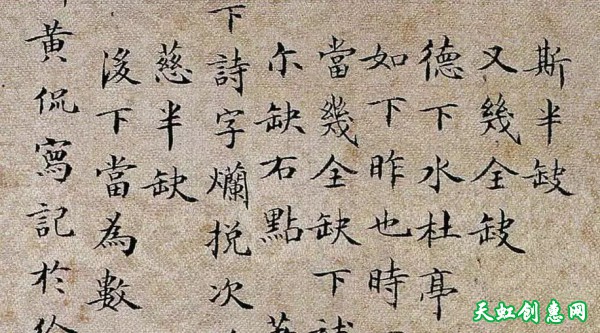 斯半缺
又幾全缺
德下水杜亭
如下昨也時
當幾全缺下
尒缺右點
下詩字爛挩次
慈半缺
後下當為數
黃侃寫記於
天虹创惠网